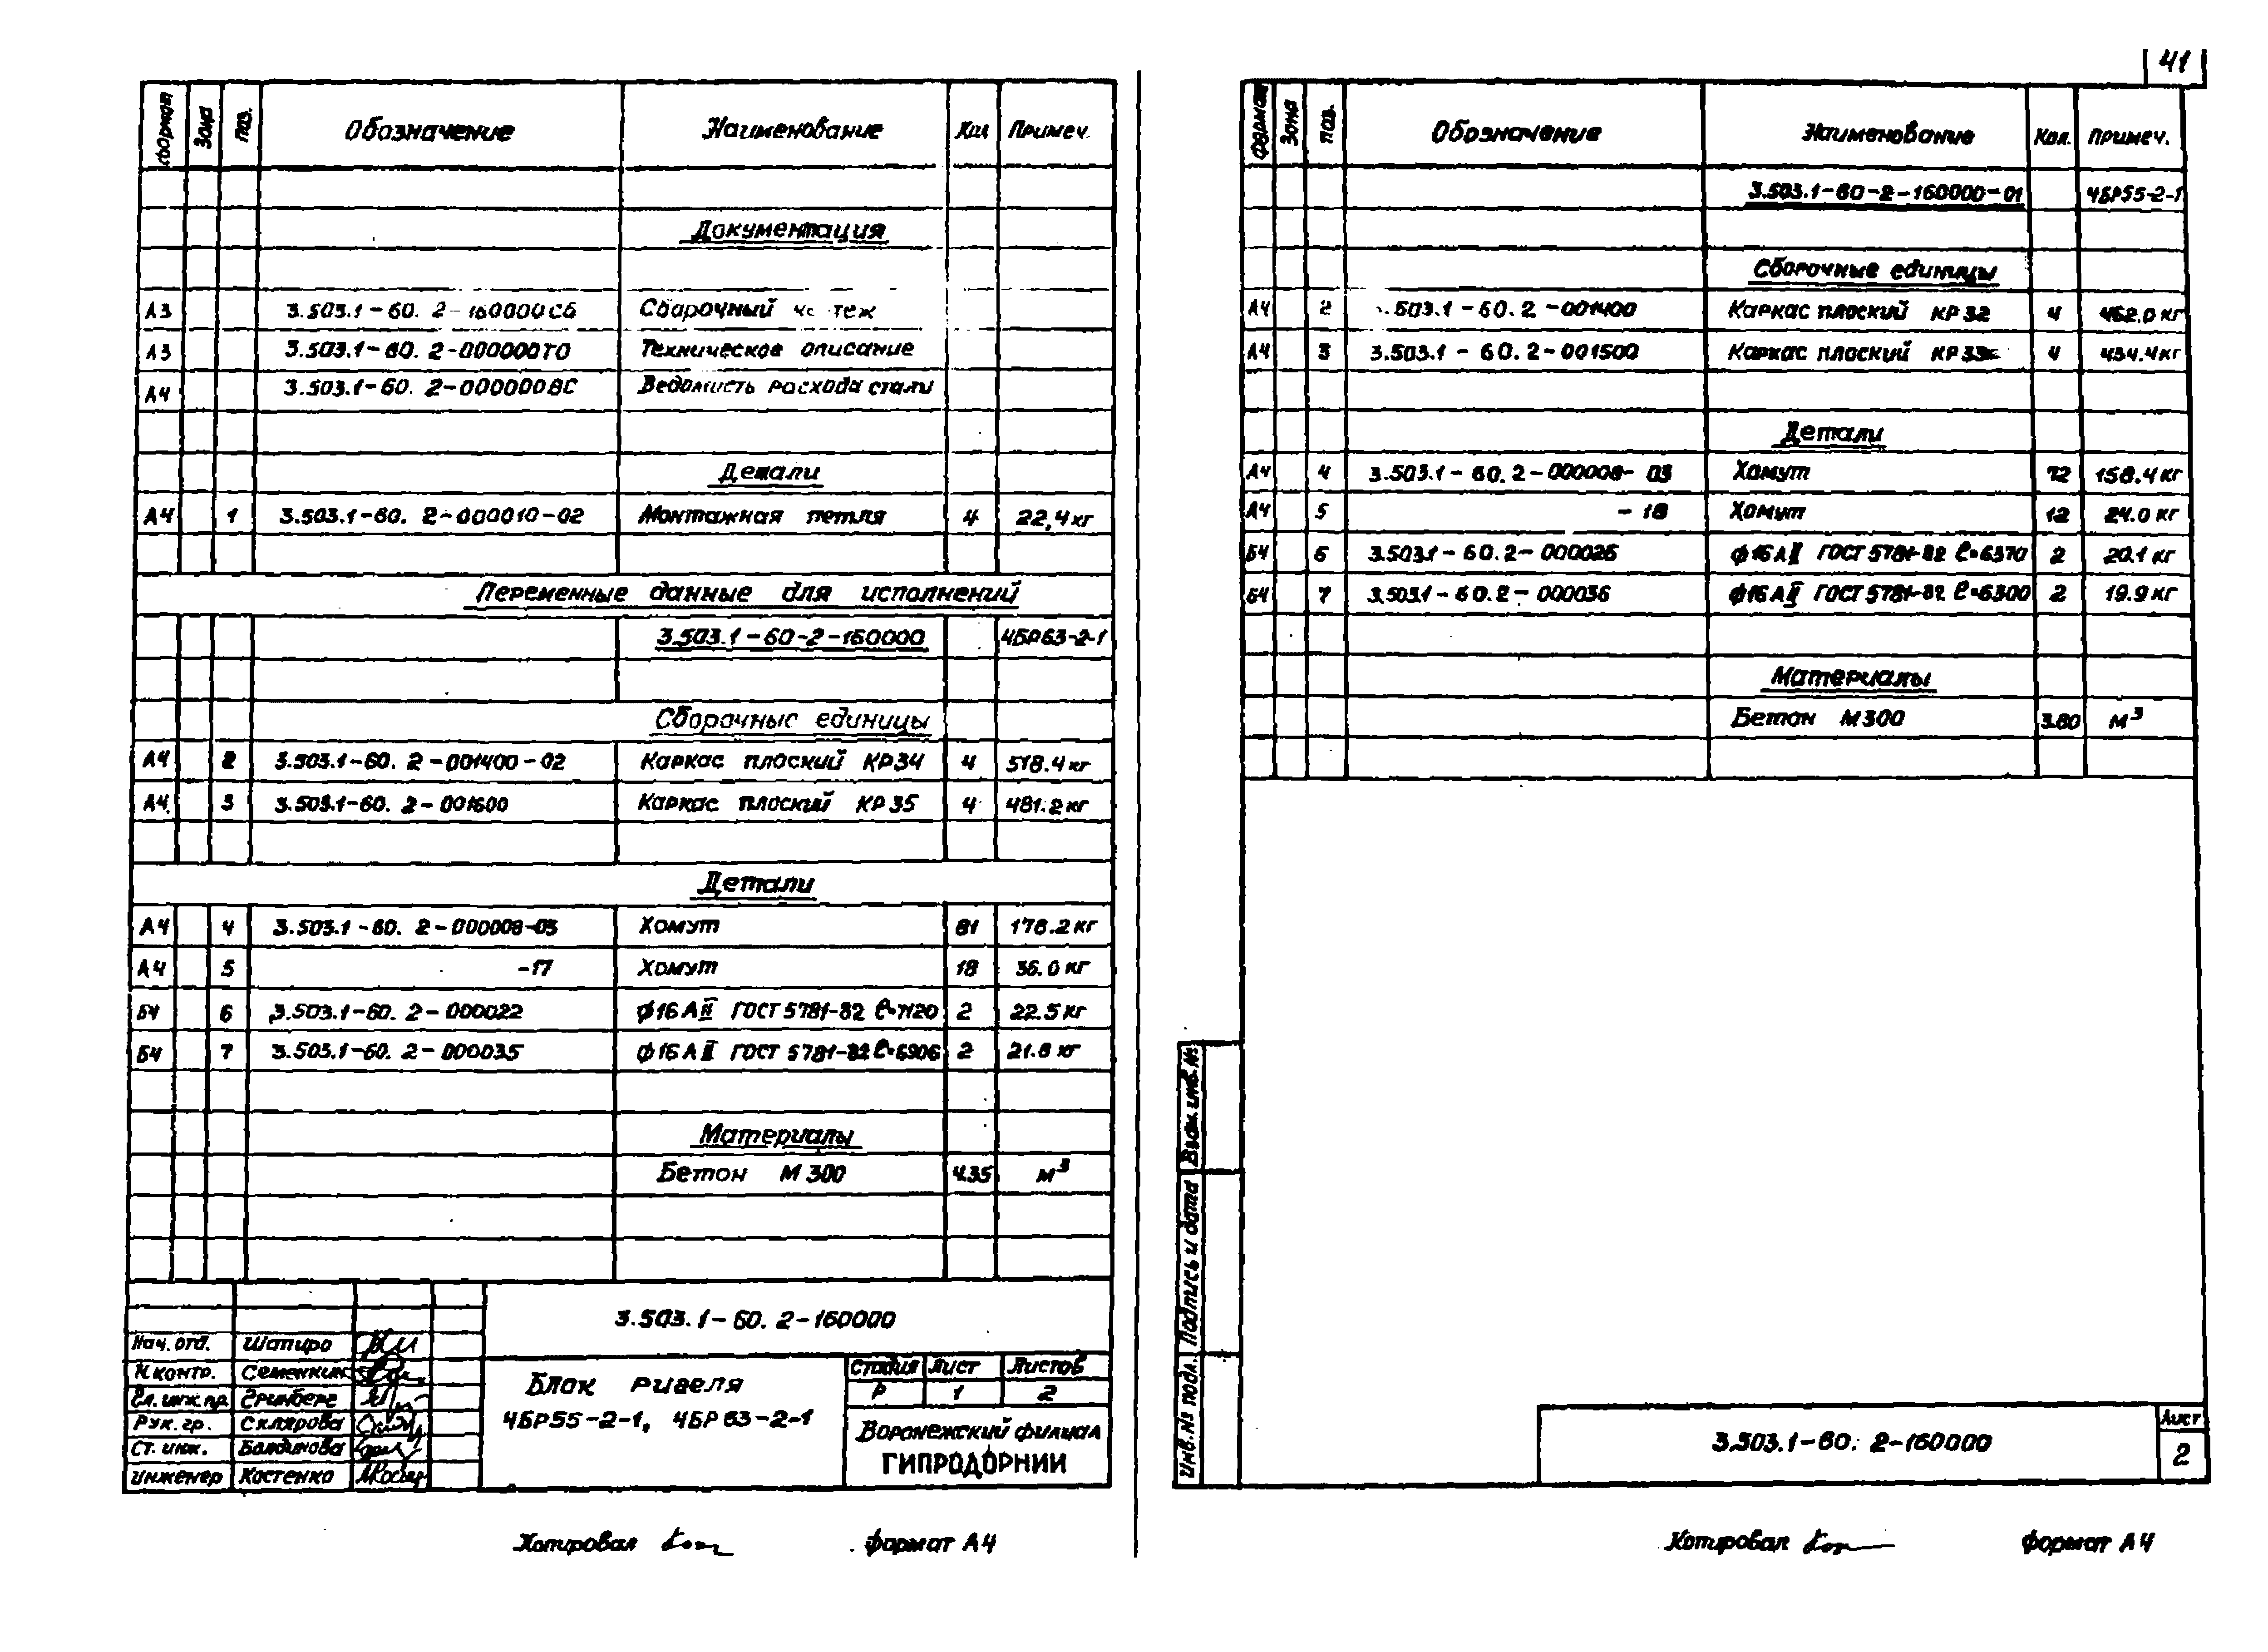 Формат Зона Поз. Обозначение Наименование Кол Примеч.
Документация
А3 3.503.1-60. 2-160000СБ Сборочный
А3 3.503.1-60. 2-000000ТО Техническое описание
А4 3.503.1-60. 2-000000ВС Ведомость расхода стали
Детали
А4 1 3.503.1-60. 2-000010-02 Монтажная петля 4 22,4 кг
Переменные данные для исполнений
3.503.1-60-2-160000 4БР63-2-1
Сборочные единицы
А4 2 3.503.1-60. 2-001400-02 Каркас плоский КР34 4 518.4 кг
А4. 3 3.503.1-60. 2-001600 Каркас плоский КР35 4 481.2 кг
Детали
А4 4 3.503.1-60. 2-000008-03 Хомут 81 178.2 кг
А4 5 -17 Хомут 18 36.0 кг
Б4 6 3.503.1-60. 2-000022 ф16АII ГОСТ 5781-82 ℓ=7120 2 22.5 кг
Б4 7 3.503.1-60. 2-000035 ф16АII ГОСТ 5781-82 ℓ=6906 2 21.8 кг
Материалы
Бетон М300 4.35 м³
3.503.1-60. 2-160000
Нач. отд. Шапиро
Н.контр. Семенкин
Гл. инж. пр. Гринберг
Рук. гр. Склярова
Ст. инж. Балдинова
Инженер Костенко
Блок ригеля
4БР55-2-1, 4БР63-2-1
Стадия Лист Листов
Р 1 2
Воронежский филиал
ГИПРОДОРНИИ
Копировал формат А4
41
Формат Зона Поз. Обозначение Наименование Кол. Примеч.
3.503.1-60-2-160000-01 4БР55-2-1
Сборочные единицы
А4 2 3.503.1-60. 2-001400 Каркас плоский КР32 4 462.0 кг
А4 3 3.503.1-60. 2-001500 Каркас плоский КР33 4 434.4 кг
Детали
А4 4 3.503.1-60. 2-000008-03 Хомут 72 158.4 кг
А4 5 -18 Хомут 12 24.0 кг
Б4 6 3.503.1-60. 2-000026 ф16АII ГОСТ 5781-82 ℓ=6370 2 20.1 кг
Б4 7 3.503.1-60. 2-000036 ф16АII ГОСТ 5781-82 ℓ=6300 2 19.9 кг
Материалы
Бетон М300 3.80 м³
Взам. инв. №
Подпись и дата
Инв. № подл.
3.503.1-60. 2-160000
Лист
2
Копировал формат А4